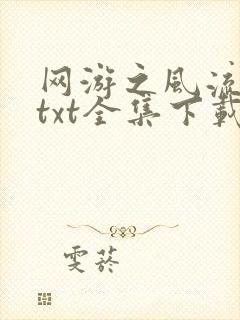 网游之风流
txt全集下载
雯菸